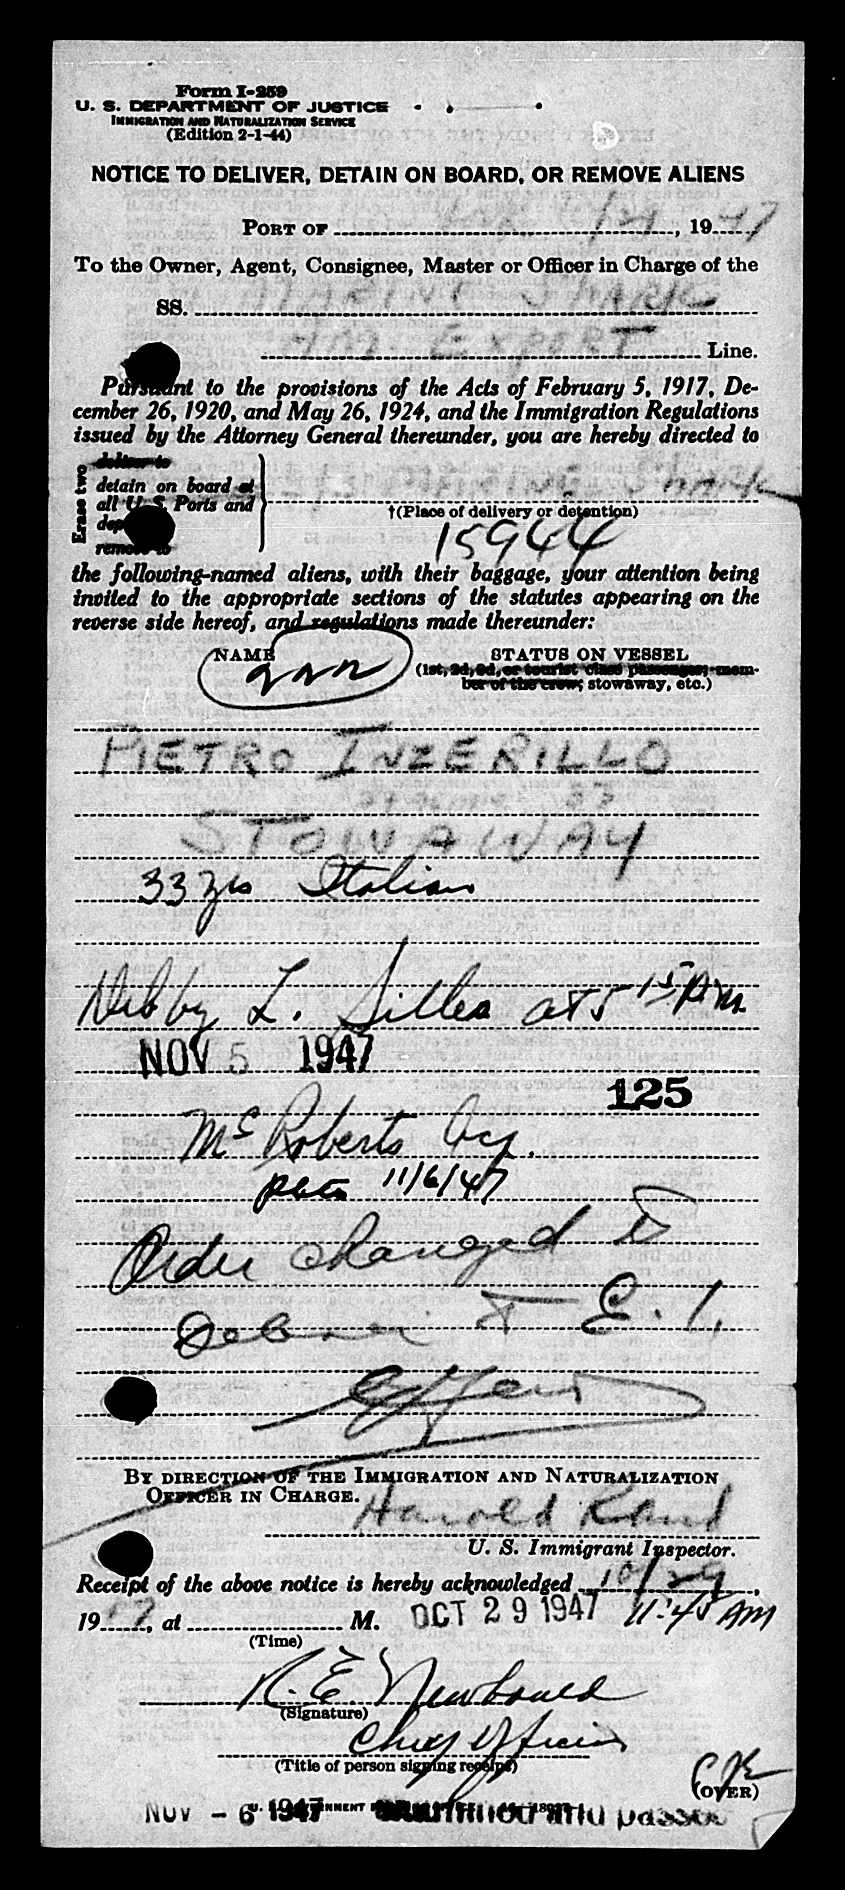 Form I-259
U. S. DEPARTMENT OF JUSTICE
IMMIGRATION AND NATURALIZATION SERVICE
(Edition 2-1-44)
NOTICE TO DELIVER, DETAIN ON BOARD, OR REMOVE ALIENS
PORT OF 19 47
To the Owner, Agent, Consignee, Master or Officer in Charge of the
SS. MARINE SHARK
AM. EXPORT Line.
Pursuant to the provisions of the Acts of February 5, 1917, De-
cember 26, 1920, and May 26, 1924, and the Immigration Regulations
issued by the Attorney General thereunder, you are hereby directed to
Erase two
deliver to
detain on board at
all U. S. Ports and
remove to
MARINE SHARK
†(Place of delivery or detention)
15944
the following-named aliens, with their baggage, your attention being
invited to the appropriate sections of the statutes appearing on the
reverse side hereof, and regulations made thereunder:
NAME STATUS ON VESSEL
(1st, 2d, 3d, or tourist class passenger, mem-
ber of the crew, stowaway, etc.)
PIETRO INZERILLO
STOWAWAY
33 yrs Italian
L. at 5 15 PM
NOV 5 1947
125
McRoberts
11/6/47
Order changed to
E. I.
BY DIRECTION OF THE IMMIGRATION AND NATURALIZATION
OFFICER IN CHARGE.
Harold
U. S. Immigrant Inspector.
Receipt of the above notice is hereby acknowledged 10/29,
19 47, at M. OCT 29 1947 11:45 AM
(Time)
R. E.
(Signature)
Chief Officer
(Title of person signing receipt)
(OVER)
NOV - 6 1947 and passed